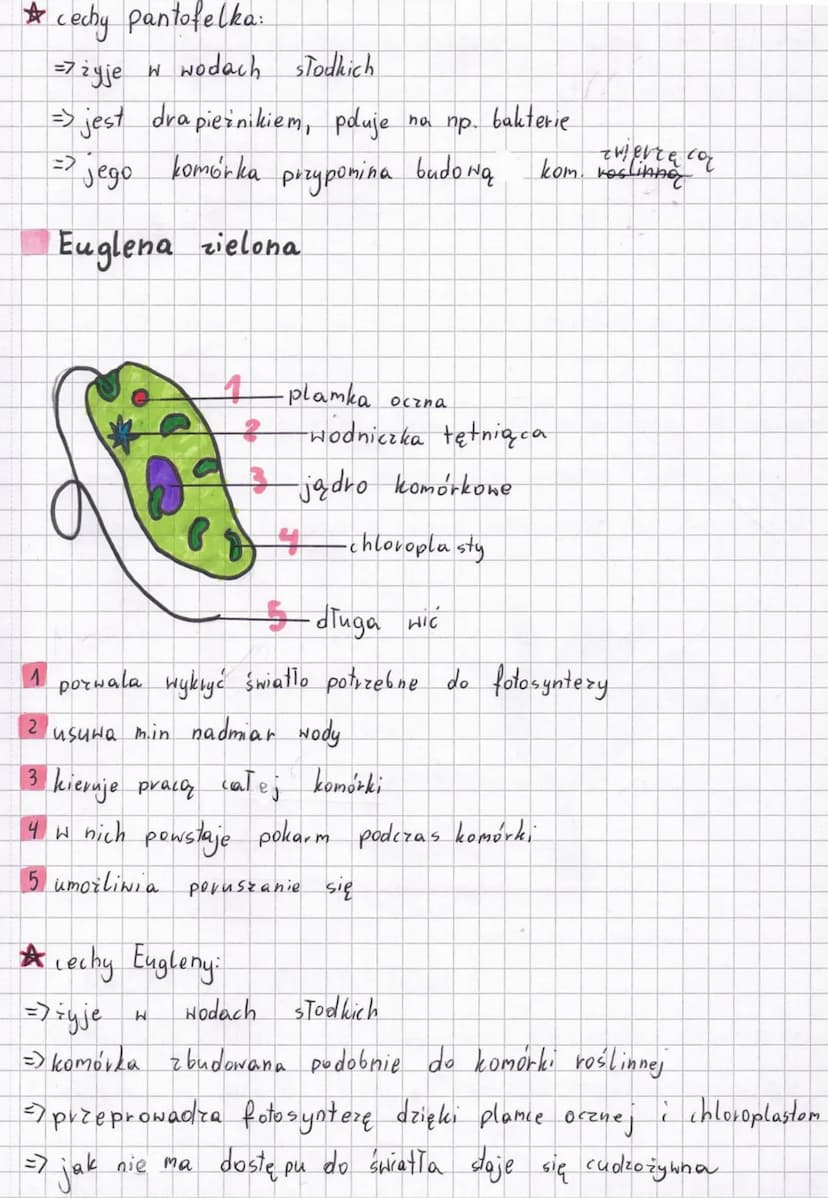 cechy pantofelka:
=> żyje w wodach słodkich
=> jest drapieżnikiem, poluje na np. bakterie
zwierzęcą
=> jego komórka przypomina budową kom. roślinną
Euglena zielona
1 plamka oczna
2 wodniczka tętniąca
3 jądro komórkowe
4 chloroplasty
5 długa wić
1 pozwala wykryć światło potrzebne do fotosyntezy
2 usuwa m.in nadmiar wody
3 kieruje pracą całej komórki
4 w nich powstaje pokarm podczas komórki
5 umożliwia poruszanie się
cechy Eugleny:
=> żyje w wodach słodkich
=> komórka zbudowana podobnie do komórki roślinnej
=> przeprowadza fotosyntezę dzięki plamce ocznej i chloroplastom
=> jak nie ma dostępu do światła staje się cudzożywna